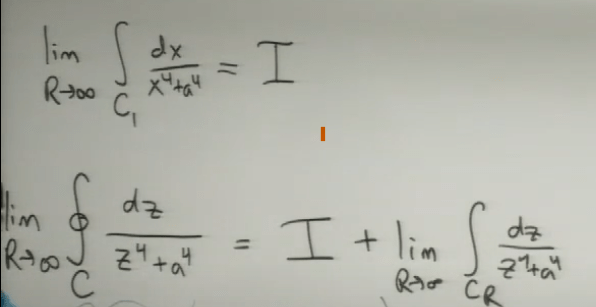 lim R→∞ ∫ C₁ dx / x⁴+a⁴ = I
lim R→∞ ∮ C dz / z⁴+a⁴ = I + lim R→∞ ∫ C_R dz / z⁴+a⁴